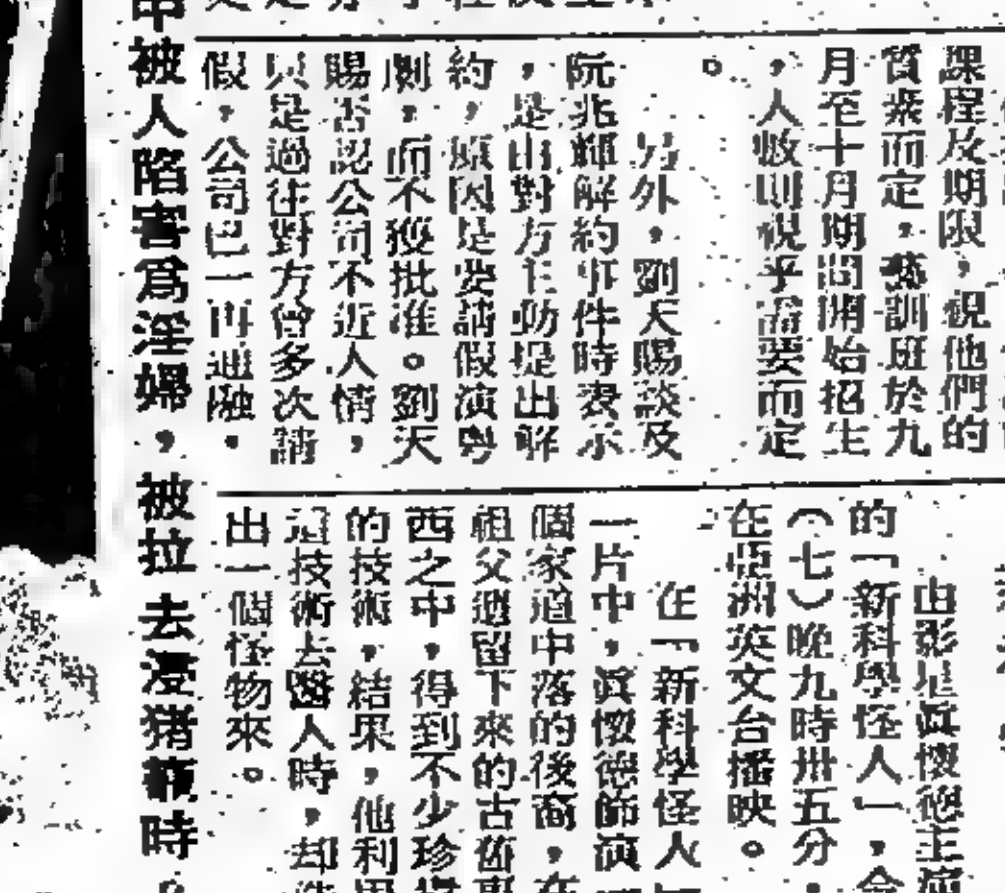 課程及期限，視他們的
質素而定，藝訓班於九
月至十月期間開始招生
，人數則視乎需要而定
。
另外，劉天賜談及
阮兆輝解約事件時表示
，是由對方主動提出解
約，原因是要請假演粵
劇，而不獲批准。劉天
賜否認公司不近人情，
只是過往對方曾多次請
假，公司已一再通融。
由影星眞懷德主演
的「新科學怪人」，今
（七）晚九時卅五分，
在亞洲英文台播映。
在「新科學怪人」
一片中，眞懷德飾演
個家道中落的後裔，在
祖父遺留下來的古舊東
西之中，得到不少珍
的技術，結果，他利用
這技術去醫人時，却
出一個怪物來。
被人陷害為淫婦，被拉去浸猪籠時，